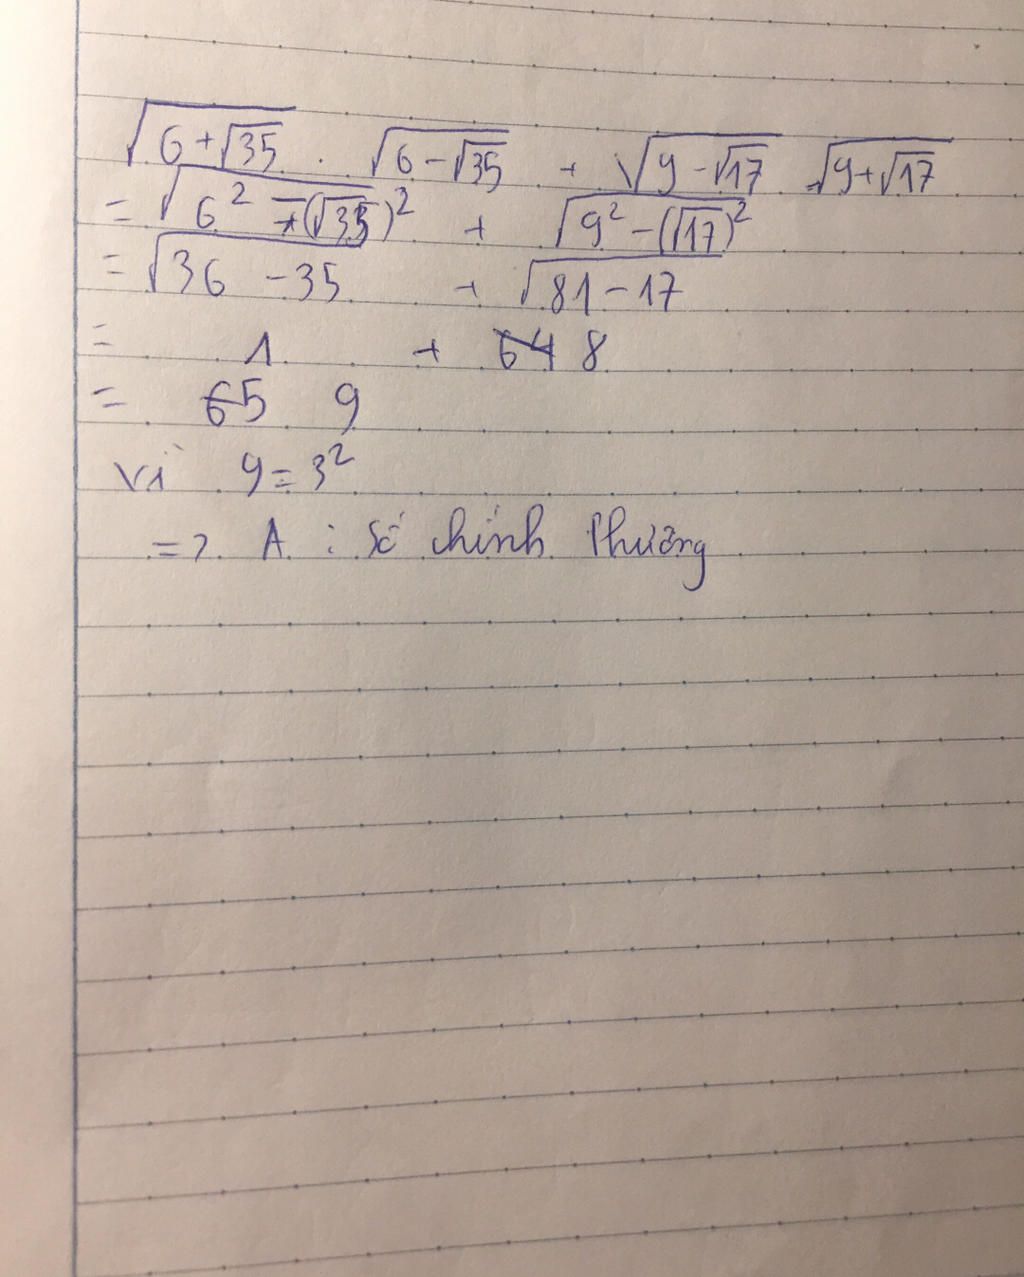 √(6+√35) . √(6-√35) + √(9-√17) . √(9+√17)
= √(6² - (√35)²) + √(9² - (√17)²)
= √(36 - 35) + √(81 - 17)
= 1 + 64 8
= 65 9
Vì 9 = 3²
=> A : Số chính phương